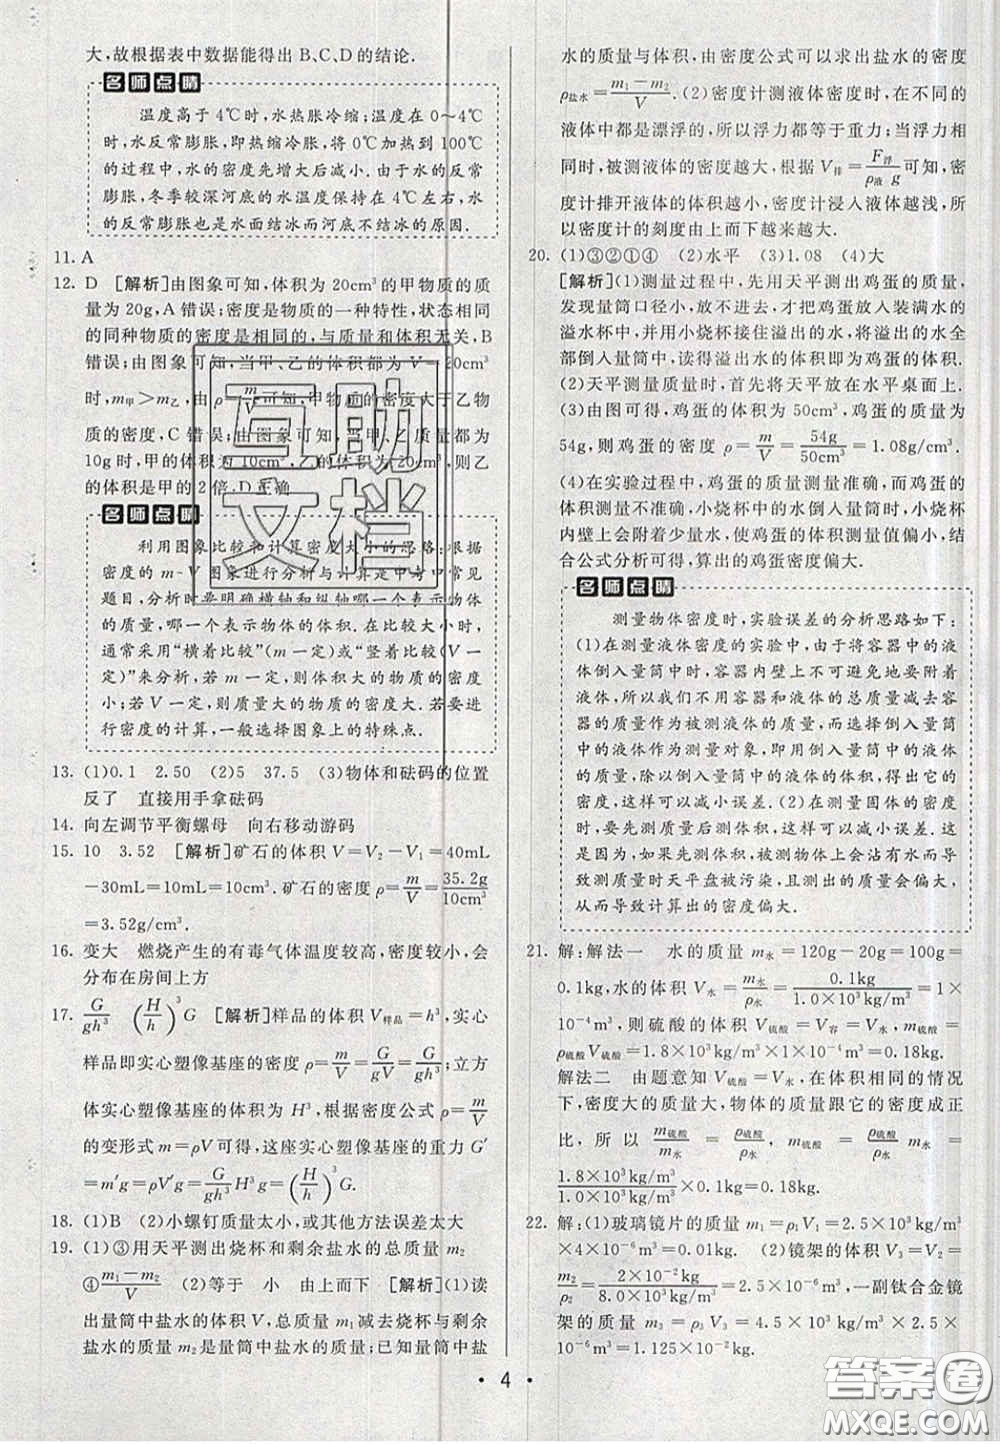 大,故根据表中数据能得出 B、C、D 的结论.
名师点睛
温度高于 4℃时,水热胀冷缩;温度在 0～4℃
时,水反常膨胀,即热缩冷胀,将 0℃加热到 100℃
的过程中,水的密度先增大后减小.由于水的反常
膨胀,冬季较深河底的水温度保持在 4℃左右,水的
反常膨胀也是水面结冰而河底不结冰的原因.
11. A
12. D [解析]由图象可知,体积为 20cm³的甲物质的质
量为 20g,A 错误;密度是物质的一种特性,状态相同
的同种物质的密度是相同的,与质量和体积无关,B
错误;由图象可知,当甲、乙的体积都为 V=20cm³
时,m甲>m乙,由 ρ=m/V 可知,甲物质的密度大于乙物
质的密度,C 错误;由图象可知,当甲、乙质量都为
10g 时,甲的体积为 10cm³,乙的体积为 20cm³,则乙
的体积是甲的 2 倍,D 正确.
名师点睛
利用图象比较和计算密度大小的思路:根据
密度的 m-V 图象进行分析与计算是中考中常见
题型,分析时要明确横轴和纵轴哪一个表示物体
的质量,哪一个表示物体的体积.在比较大小时,
通常采用“横着比较”(m 一定)或“竖着比较(V 一
定)”来分析,若 m 一定,则体积大的物质的密度
小;若 V 一定,则质量大的物质的密度大.若要进
行密度的计算,一般选择图象上的特殊点.
13. (1)0.1 2.50 (2)5 37.5 (3)物体和砝码的位置
反了 直接用手拿砝码
14. 向左调节平衡螺母 向右移动游码
15. 10 3.52 [解析]矿石的体积 V=V₂-V₁=40mL
-30mL=10mL=10cm³.矿石的密度 ρ=m/V=35.2g/10cm³
=3.52g/cm³.
16. 变大 燃烧产生的有毒气体温度较高,密度较小,会
分布在房间上方
17. G/gh³ (H/h)³G [解析]样品的体积 V样品=h³,实心
样品即实心塑像基座的密度 ρ=m/V=G/gV=G/gh³;立方
体实心塑像基座的体积为 H³,根据密度公式 ρ=m/V
的变形式 m=ρV 可得,这座实心塑像基座的重力 G′
=m′g=ρV′g=G/gh³H³g=(H/h)³G.
18. (1)B (2)小螺钉质量太小,或其他方法误差太大
19. (1)③用天平测出烧杯和剩余盐水的总质量 m₂
④(m₁-m₂)/V (2)等于 小 由上而下 [解析](1)读
出量筒中盐水的体积 V,总质量 m₁减去烧杯和剩余
盐水的总质量 m₂是量筒中盐水的质量;已知量筒中盐
水的质量与体积,由密度公式可以求出盐水的密度
ρ盐水=(m₁-m₂)/V.(2)密度计测液体密度时,在各种
液体中都是漂浮的,所以浮力都等于重力;当浮力相
同时,被测液体的密度越大,根据 V排=F浮/ρ液g可知,密
度计排开液体的体积越小,密度计浸入液体越浅,所
以密度计的刻度由上而下越来越大.
20. (1)③②①④ (2)水平 (3)1.08 (4)大
[解析](1)测量过程中,先用天平测出鸡蛋的质量,
发现量筒口径小,放不进去,才把鸡蛋放入装满水的
溢水杯中,并用小烧杯接住溢出的水,将溢出的水全
部倒入量筒中,读得溢出水的体积即为鸡蛋的体积.
(2)天平测量质量时,首先将天平放在水平桌面上.
(3)由图可得,鸡蛋的体积为 50cm³,鸡蛋的质量为
54g,则鸡蛋的密度 ρ=m/V=54g/50cm³=1.08g/cm³.
(4)在实验过程中,鸡蛋的质量测量准确,而鸡蛋的
体积测量不准确,小烧杯中的水倒入量筒,小烧杯
内壁上会附着少量水,使鸡蛋的体积测量值偏小,结
合公式分析可得,算出的鸡蛋密度偏大.
名师点睛
测量物体密度时,实验误差的分析思路如下:
(1)在测量液体密度时,由于将容器中的液
体倒入量筒中时,容器内壁上不可避免地要附着
液体,所以我们不用容器和液体的总质量减去容
器的质量作为被测液体的质量,而选择倒入量筒
中的液体作为测量对象,即用倒入量筒中液体的
质量,除以倒入量筒中的液体的体积,得出它的
密度,这样可以减小误差.(2)在测量固体的密度
时,要先测质量,再测体积,这样可以减小误差.这
是因为,如果先测体积,被测物体上会沾有水,导
致测质量时天平盘被污染,且测出的质量会偏大,
从而导致计算出的密度偏大.
21. 解:解法一 水的质量 m水=120g-20g=100g=
0.1kg,水的体积 V水=m水/ρ水=0.1kg/1.0×10³kg/m³=1×
10⁻⁴m³,则硫酸的体积 V硫酸=V容=V水,m硫酸=
ρ硫酸V硫酸=1.8×10³kg/m³×1×10⁻⁴m³=0.18kg.
解法二 由题意知 V硫酸=V水,在体积相同的情况
下,密度大的质量大,物体的质量跟它的密度成正
比,所以 m硫酸/m水=ρ硫酸/ρ水,m硫酸=ρ硫酸/ρ水 m水=
1.8×10³kg/m³/1.0×10³kg/m³×0.1kg=0.18kg.
22. 解:(1)玻璃镜片的质量 m₁=ρ₁V₁=2.5×10³kg/m³
×4×10⁻⁶m³=0.01kg. (2)镜架的体积 V₃=V₂=
m₂/ρ₂=2×10⁻²kg/8×10³kg/m³=2.5×10⁻⁶m³,一副钛合金镜
架的质量 m₃=ρ₃V₃=4.5×10³kg/m³×2.5×
10⁻⁶m³=1.125×10⁻²kg.
·4·
互助文档
答案圈
MXQE.COM